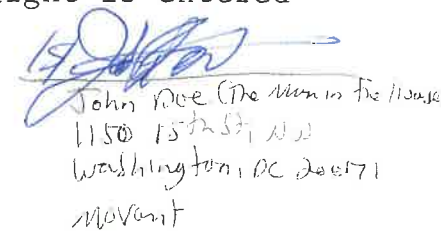 ight is entered
John Doe (The Man in the House
1150 15th St, NW
Washington, DC 20071
Movant